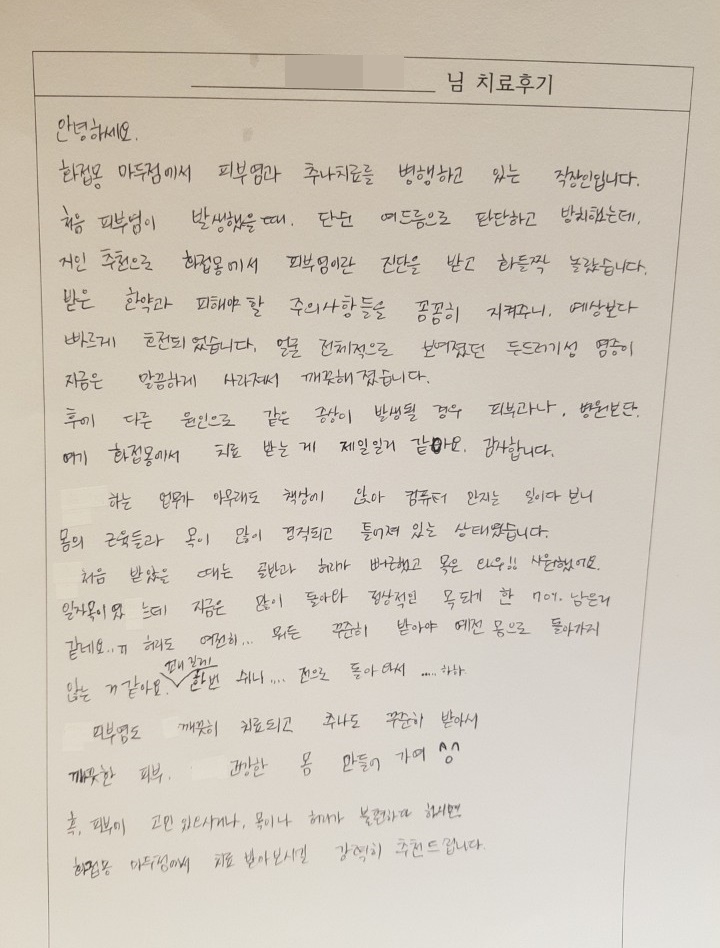 님 치료후기
안녕하세요.
화접몽 마두점에서 피부염과 추나치료를 병행하고 있는 직장인입니다.
처음 피부염이 발생했을 때, 단순 여드름으로 판단하고 방치했는데,
지인 추천으로 화접몽에서 피부염이란 진단을 받고 화들짝 놀랐습니다.
받은 한약과 피해야 할 주의사항들을 꼼꼼히 지켜주니, 예상보다
빠르게 호전되었습니다. 얼굴 전체적으로 보여졌던 두드러기성 염증이
지금은 말끔하게 사라져서 깨끗해졌습니다.
후에 다른 원인으로 같은 증상이 발생될 경우 피부과나, 병원보단,
여기 화접몽에서 치료 받는게 제일일거 같아요. 감사합니다.
하는 업무가 아무래도 책상에 앉아 컴퓨터 만지는 일이다 보니
몸의 근육들과 목이 많이 경직되고 틀어져 있는 상태였습니다.
처음 받았을 때는 골반과 허리가 뻐근했고 목은 와우!! 시원했어요.
일자목이었는데 지금은 많이 돌아와 정상적인 목 되게 한 70% 남은거
같네요..ㅠ 허리도 여전히... 뭐든 꾸준히 받아야 예전 몸으로 돌아가지
않는 거 같아요. 한번 쉬니.... 전으로 돌아와서 ..... 하하
피부염도 깨끗히 치료되고 추나도 꾸준히 받아서
깨끗한 피부, 건강한 몸 만들어 가여 ^^
혹, 피부에 고민 있으시거나, 목이나 허리가 불편하다 하시면
화접몽 마두점에서 치료 받아보시길 강력히 추천드립니다.